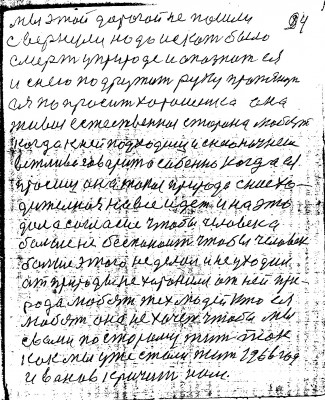 мы этой дорогой не пошли 84
свернули надо искат было
смерт у природе и опознат ея
и снею подружит руку протянут
ея попросит хорошенька она
живая естественная сторона любит
когда к ней подходиш и склоничнем
вежливо говорит особенно когда ея
просиш она такая природа снисхо-
дительная на все идет и на это
дала согласие чтобы человека
больше не беспокоит чтобы человек
больше этого не делал и не уходил
от природы не хоронили от ней при-
рода любит тех людей кто ея
любят она не хочет чтобы мы
свами по старому жит так
как мы уже стали жит 1966 год
иванов кричит нам.